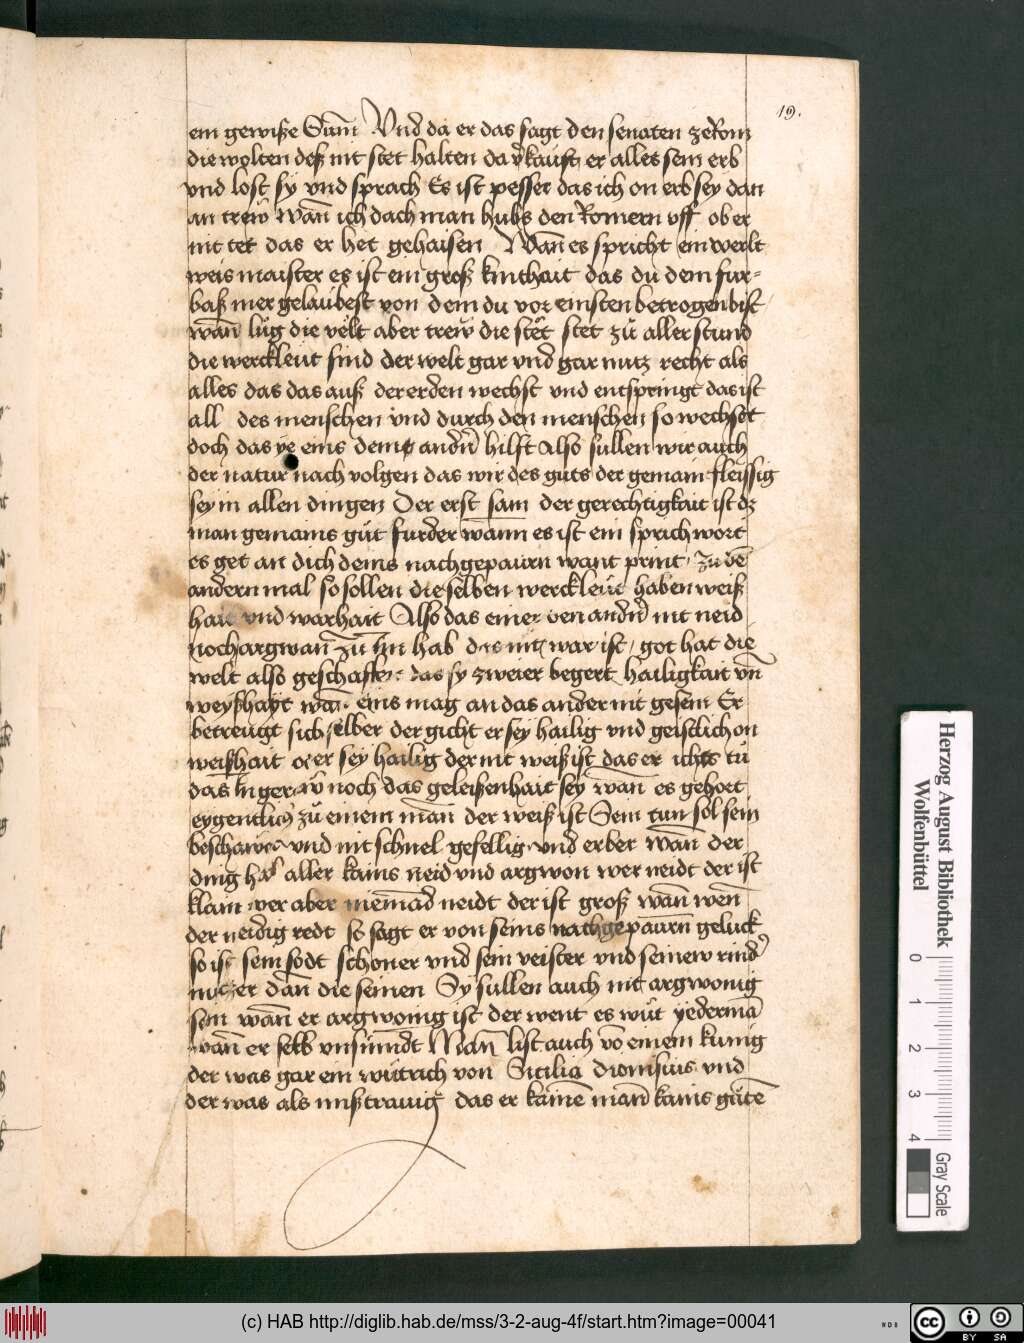 19.
ein gewiße Sum̄ Vnd da er das sagt den senaten ze Rom
die wolten deß nit stet halten da v̓kauft er alles sein erb
vnd lost sy vnd sprach Es ist pesser das ich on erb sey dan
an trew wan̄ ich dach man hubs den Romern vff ob er
nit tet das er het gehaisen Wan̄ es spricht ein werlt
weis maister es ist ein groß kinthait das du dem fur=
baß mer gelaubest von dem du vor einsten betrogen bist
wan̄ lüg die velt aber trew die stët stet zů aller stund
die werckleut sind der welt gar vnd gar nutz recht als
alles das das auß der erden wechst vnd entspringt das ist
all des menschen vnd durch den menschen so wechset
doch das ye eins dem andn̄ hilft Also sullen wir auch
der natur nach volgen das wir des guts der gemain fleissig
sey in allen dingen Der erst sam der gerechtigkait ist dz
man gemains gůt furder wann es ist ein sprichwort
es get an dich deins nachgepaurn want print zu dē
andern mal so sollen die selben werckleut haben weiß
hait vnd warhait Also das einer den andn̄ nit neid
noch argwan̄ zů im hab das nit war ist got hat die
welt also geschaffen das sy zweier begert hailigkait vn̄
weyßhayt wan̄ eins mag an das ander nit gesein Er
betreugt sich selber der gicht er sey hailig vnd geistlich on
weißhait oder sey hailig der nit weiß ist das er ichts tů
das in gerew noch das geleißenhait sey wan̄ es gehort
eygentlich zů einem man̄ der weiß ist Sein tun sol sein
beschawen vnd nit schnel gefellig vnd erber wan̄ der
ding hat aller kains neid vnd argwon wer neidt der ist
klain wer aber niemād neidt der ist groß wan̄ wen̄
der neidig redt so sagt er von seins nachgepaurn geluck
so ist sein sodt schoner vnd sein veister vnd seinew rind̓
nutzer dan̄ die seinen Sy sullen auch nit argwonig
sein wan̄ er argwonig ist der went es wůt yederman̄
wan̄ er selb vnsinnidt Man̄ list auch vō einem kunig
der was gar ein wůtrich von Sicilia dionisius vnd
der was als mißtrauig das er kainē man̄ kains gůtē
Herzog August Bibliothek
Wolfenbüttel
0 1 2 3 4
Gray Scale
(c) HAB http://diglib.hab.de/mss/3-2-aug-4f/start.htm?image=00041
cc BY SA